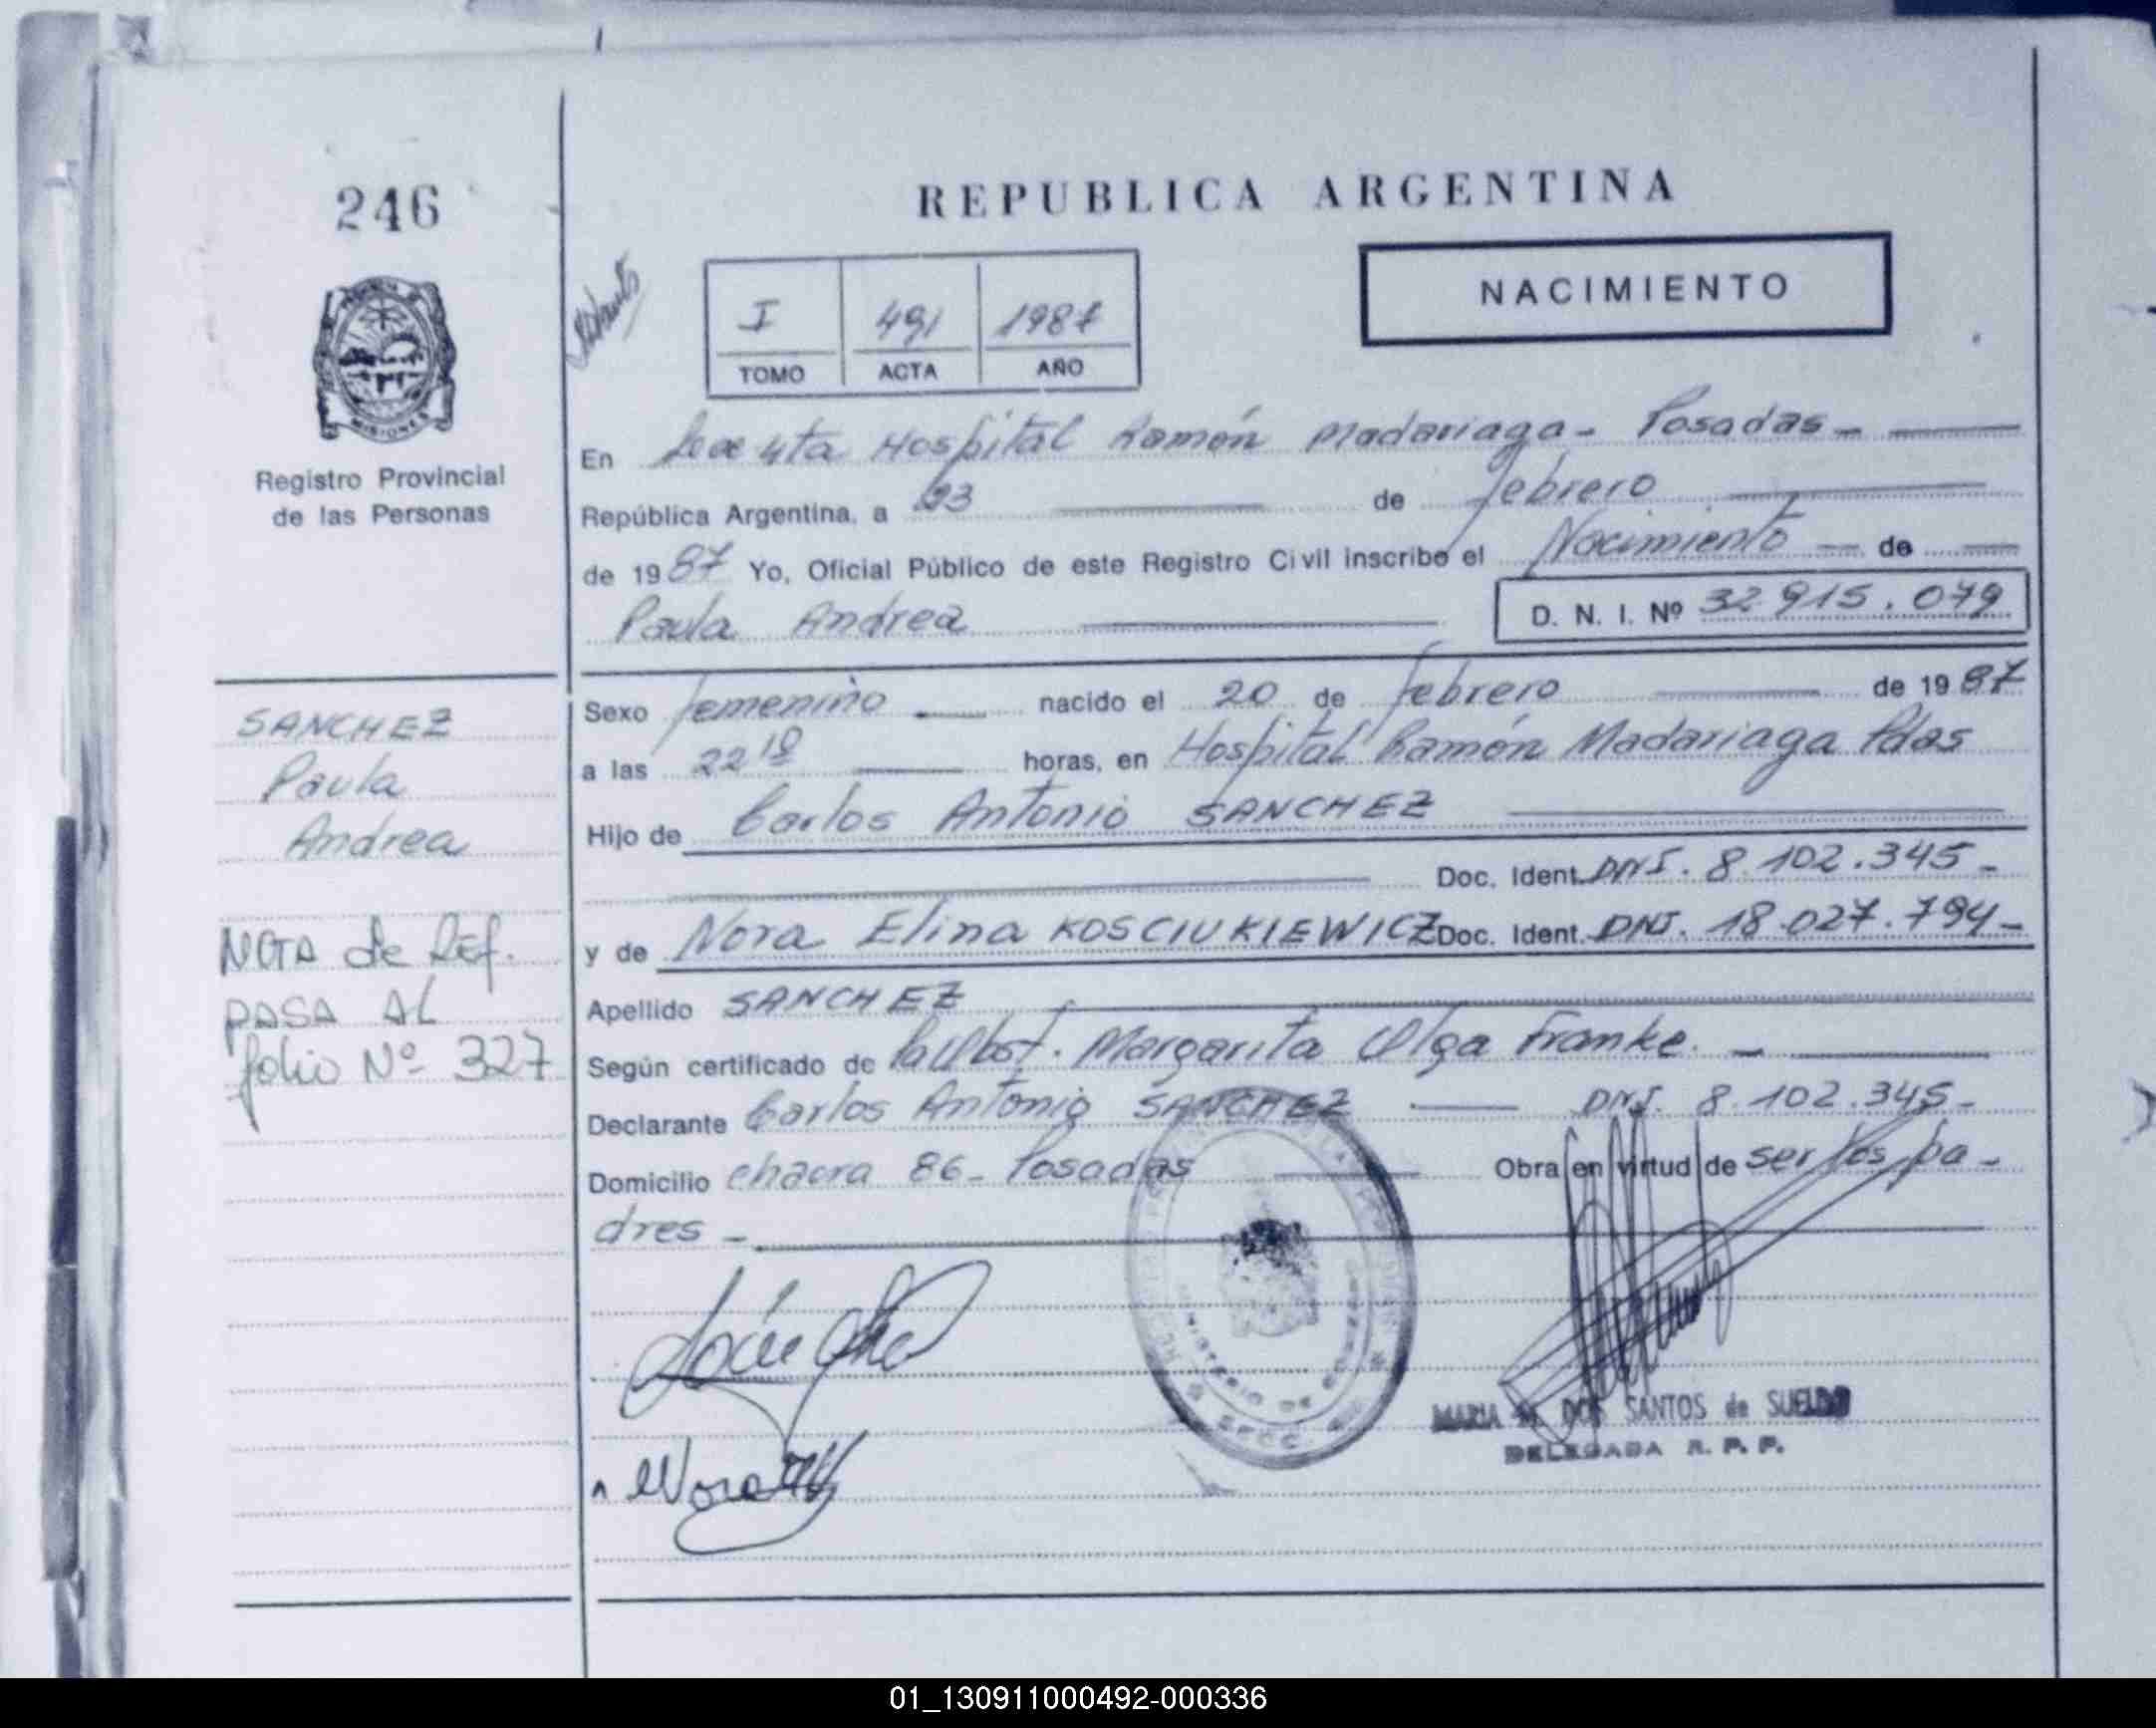 246
REPUBLICA ARGENTINA
NACIMIENTO
I 491 1987
TOMO ACTA AÑO
MISIONES
Registro Provincial
de las Personas
En Hospital Ramón Madariaga - Posadas -
República Argentina, a 23 de febrero
de 1987 Yo, Oficial Público de este Registro Civil inscribo el Nacimiento de
Paula Andrea D. N. I. Nº 32.915.079
SANCHEZ
Paula
Andrea
NOTA de Ref.
PASA AL
folio Nº 327
Sexo femenino nacido el 20 de febrero de 1987
a las 22 10 horas, en Hospital Ramón Madariaga Pdas
Hijo de Carlos Antonio SANCHEZ
Doc. Ident. DNI. 8.102.345 -
y de Nora Elina KOSCIUKIEWICZ Doc. Ident. DNI. 18.027.794 -
Apellido SANCHEZ
Según certificado de la Obst. Margarita Olga Franke. -
Declarante Carlos Antonio SANCHEZ DNI. 8.102.345 -
Domicilio chacra 86 - Posadas Obra en virtud de ser los pa -
dres -
MINISTERIO DE GOBIERNO
Nora
MARIA DOS SANTOS de SUELDO
DELEGADA R. P. P.
01_130911000492-000336